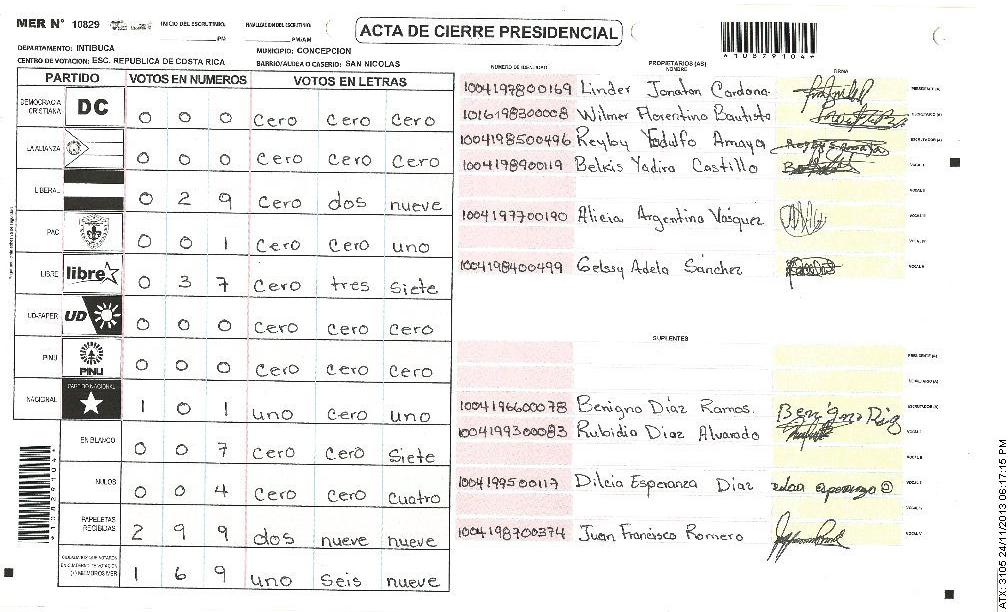 MER N° 10829 INICIO DEL ESCRUTINIO: PM FINALIZACION DEL ESCRUTINIO: PM/AM
ACTA DE CIERRE PRESIDENCIAL
*10829104*
DEPARTAMENTO: INTIBUCA MUNICIPIO: CONCEPCION
CENTRO DE VOTACION: ESC. REPUBLICA DE COSTA RICA BARRIO/ALDEA O CASERIO: SAN NICOLAS
PARTIDO VOTOS EN NUMEROS VOTOS EN LETRAS
DEMOCRACIA CRISTIANA DC 0 0 0 cero cero cero
LA ALIANZA 0 0 0 cero cero cero
LIBERAL 0 2 9 cero dos nueve
PAC 0 0 1 cero cero uno
LIBRE libre 0 3 7 cero tres siete
UD-FAPER UD 0 0 0 cero cero cero
PINU PINU 0 0 0 cero cero cero
NACIONAL PARTIDO NACIONAL 1 0 1 uno cero uno
EN BLANCO 0 0 7 cero cero siete
NULOS 0 0 4 cero cero cuatro
PAPELETAS RECIBIDAS 2 9 9 dos nueve nueve
1 6 9 uno seis nueve
NUMERO DE IDENTIDAD PROPIETARIOS (AS) NOMBRE FIRMA
1004197800169 Linder Jonatan Cardona
1016198300008 Wilmer Florentino Bautista
1004198500496 Reyby Yodulfo Amaya
100419890019 Belkis Yadira Castillo
1004197700190 Alicia Argentina Vásquez
1004198400499 Gelssy Adela Sánchez
SUPLENTES
1004196600078 Benigno Díaz Ramos. Benigno Diaz
1004199300083 Rubidia Diaz Alvarado
1004199500117 Dilcia Esperanza Diaz
1004198700374 Juan Francisco Romero
*10829104*
ATX: 3105 24/11/2013 06:17:15 PM